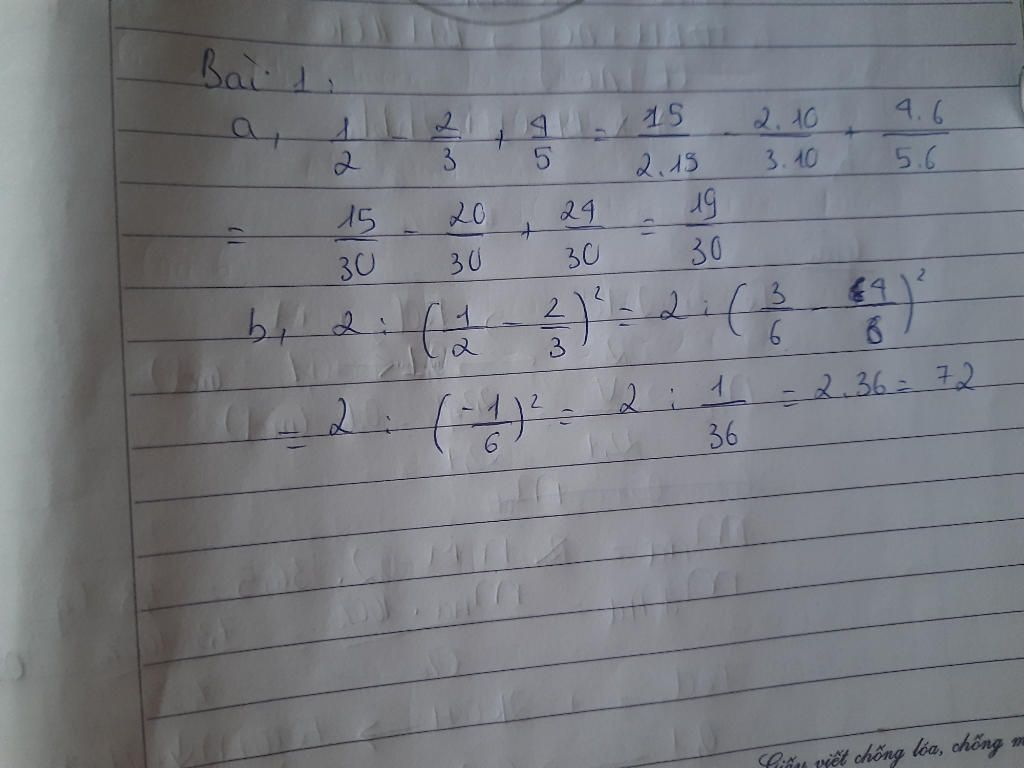 Bài 1:
a, 1/2 - 2/3 + 4/5 = 15/2.15 - 2.10/3.10 + 4.6/5.6
= 15/30 - 20/30 + 24/30 = 19/30
b, 2 : (1/2 - 2/3)² = 2 : (3/6 - 4/6)²
= 2 : (-1/6)² = 2 : 1/36 = 2.36 = 72
Giấy viết chống lóa, chống m